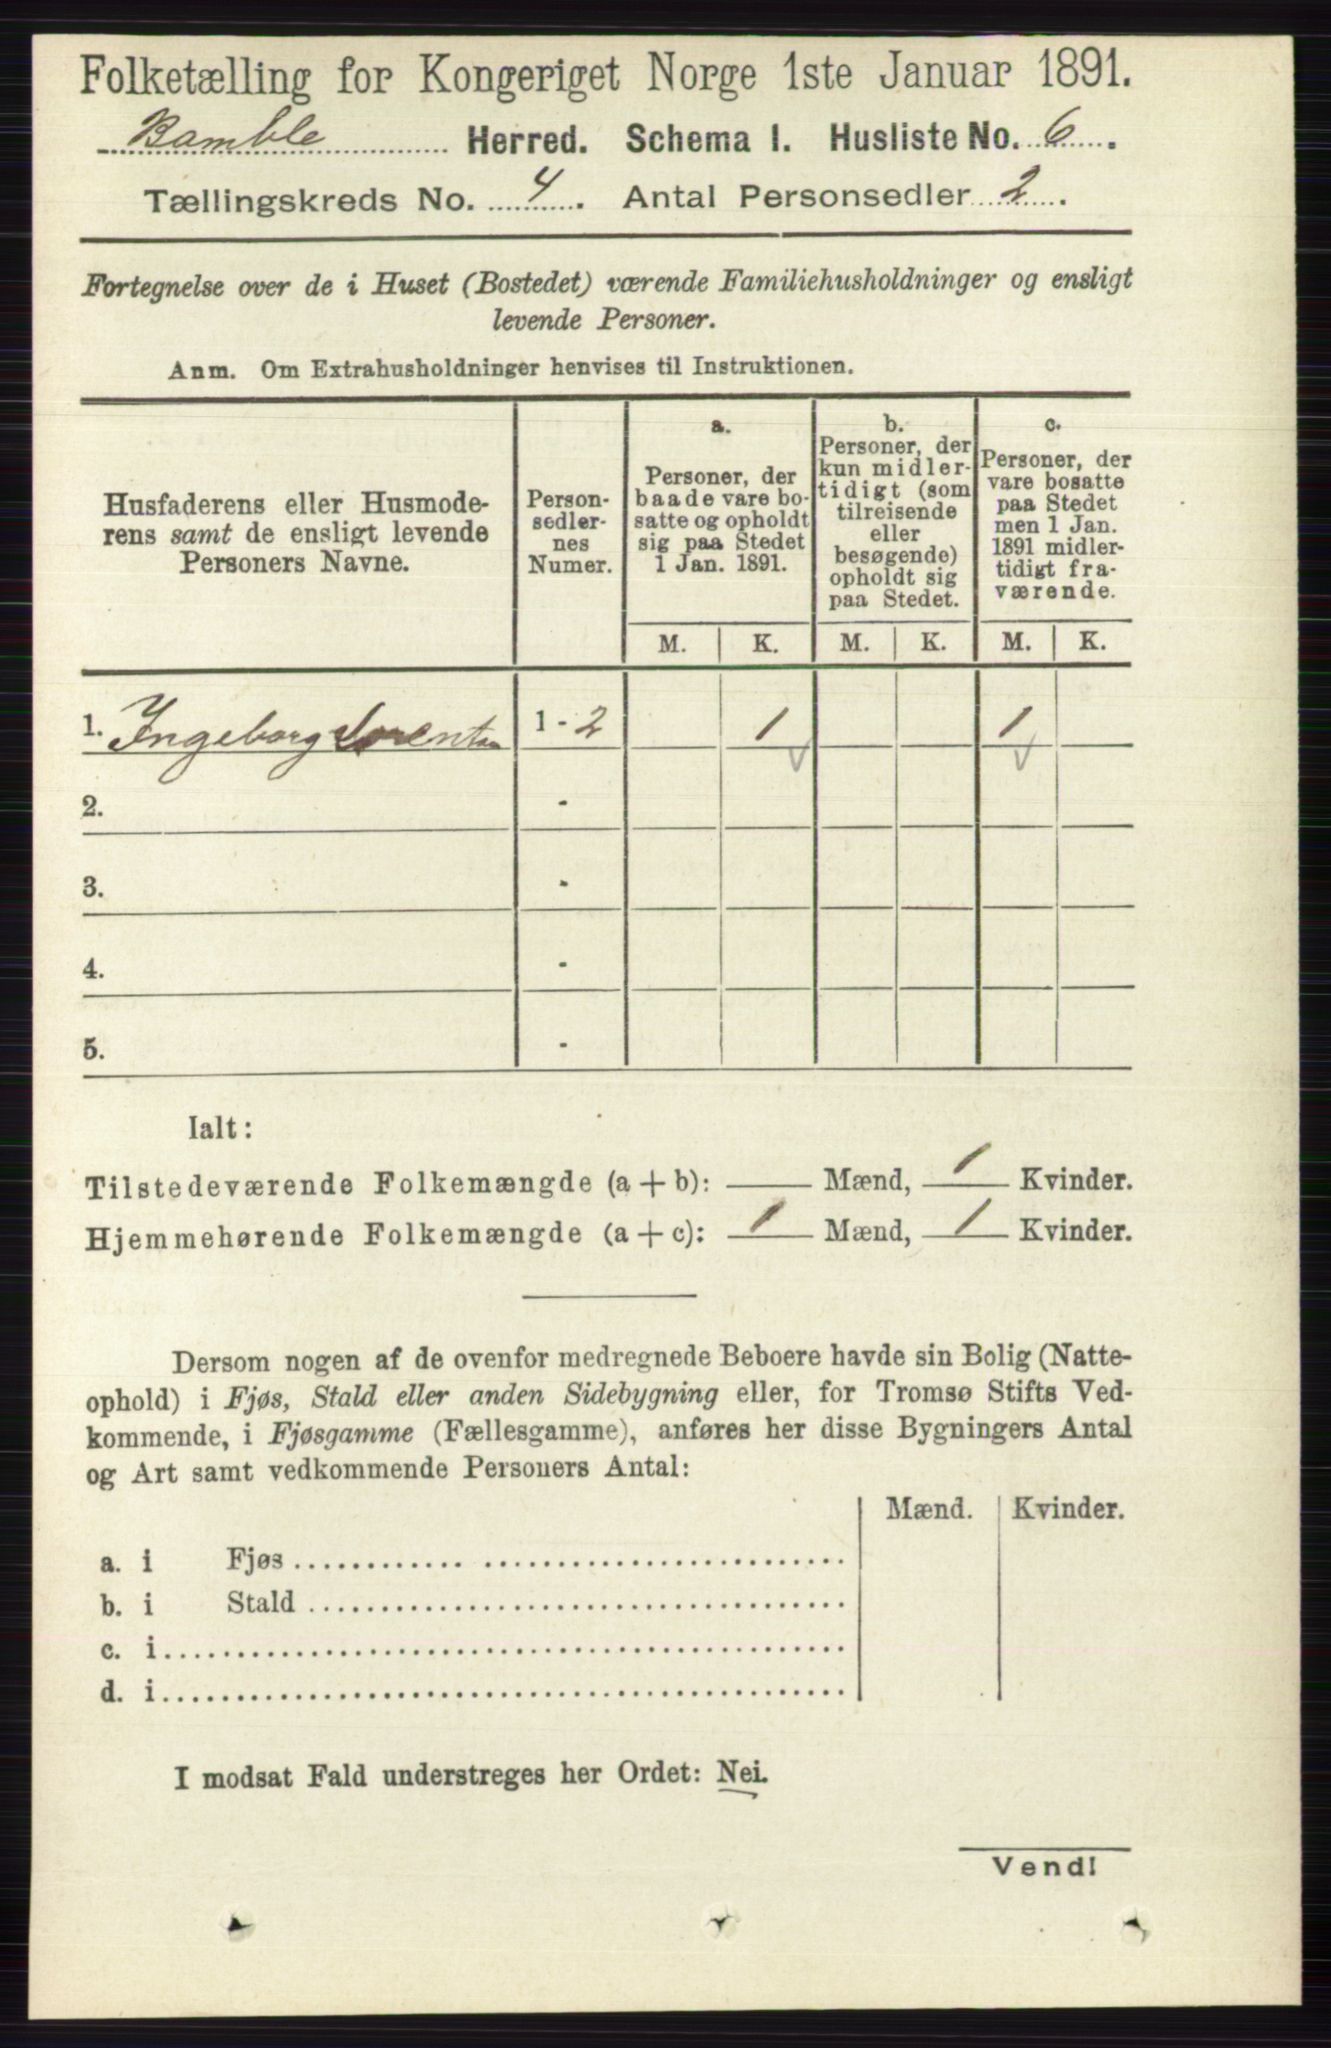 Folketælling for Kongeriget Norge 1ste Januar 1891.
Bamble Herred. Schema I. Husliste No. 6.
Tællingskreds No. 4. Antal Personsedler 2.
Fortegnelse over de i Huset (Bostedet) værende Familiehusholdninger og ensligt
levende Personer.
Anm. Om Extrahusholdninger henvises til Instruktionen.
Husfaderens eller Husmode-
rens samt de ensligt levende
Personers Navne.
Person-
sedler-
nes
Numer.
a.
Personer, der
baade vare bo-
satte og opholdt
sig paa Stedet
1 Jan. 1891.
b.
Personer, der
kun midler-
tidigt (som
tilreisende
eller
besøgende)
opholdt sig
paa Stedet.
c.
Personer, der
vare bosatte
paa Stedet
men 1 Jan.
1891 midler-
tidigt fra-
værende.
M. K. M. K. M. K.
1. Ingeborg 1 - 2 1 1
2. -
3. -
4. -
5. -
Ialt:
Tilstedeværende Folkemængde (a + b): — Mænd, 1 Kvinder.
Hjemmehørende Folkemængde (a + c): 1 Mænd, 1 Kvinder.
Dersom nogen af de ovenfor medregnede Beboere havde sin Bolig (Natte-
ophold) i Fjøs, Stald eller anden Sidebygning eller, for Tromsø Stifts Ved-
kommende, i Fjøsgamme (Fællesgamme), anføres her disse Bygningers Antal
og Art samt vedkommende Personers Antal:
Mænd. Kvinder.
a. i Fjøs
b. i Stald
c. i
d. i
I modsat Fald understreges her Ordet: Nei.
Vend!